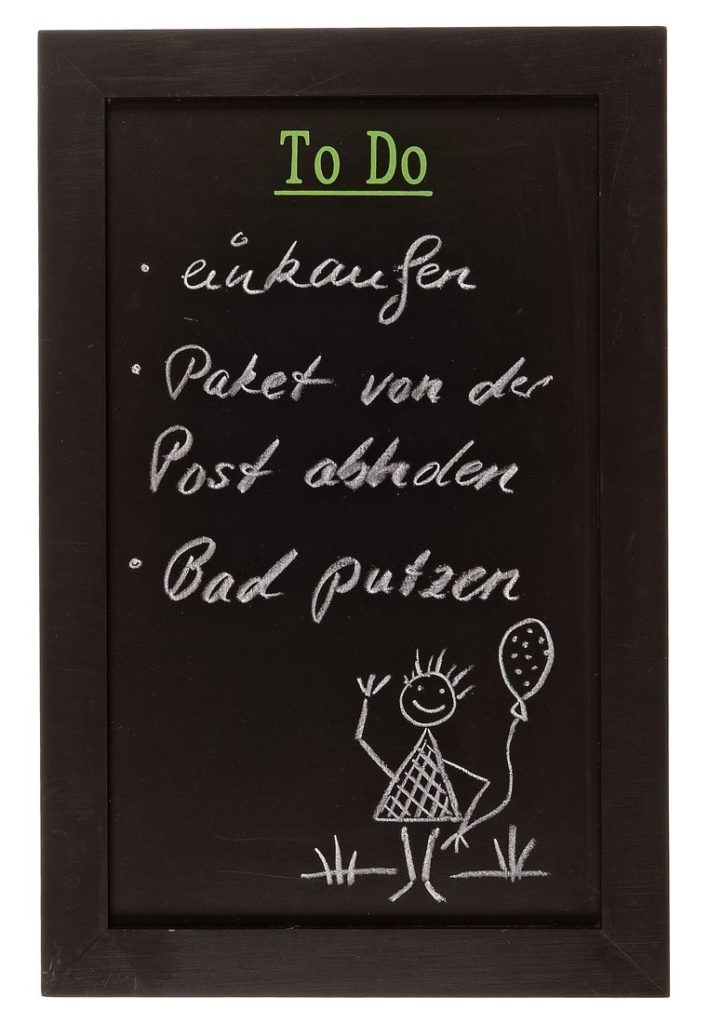 To Do
· einkaufen
· Paket von der
Post abholen
· Bad putzen